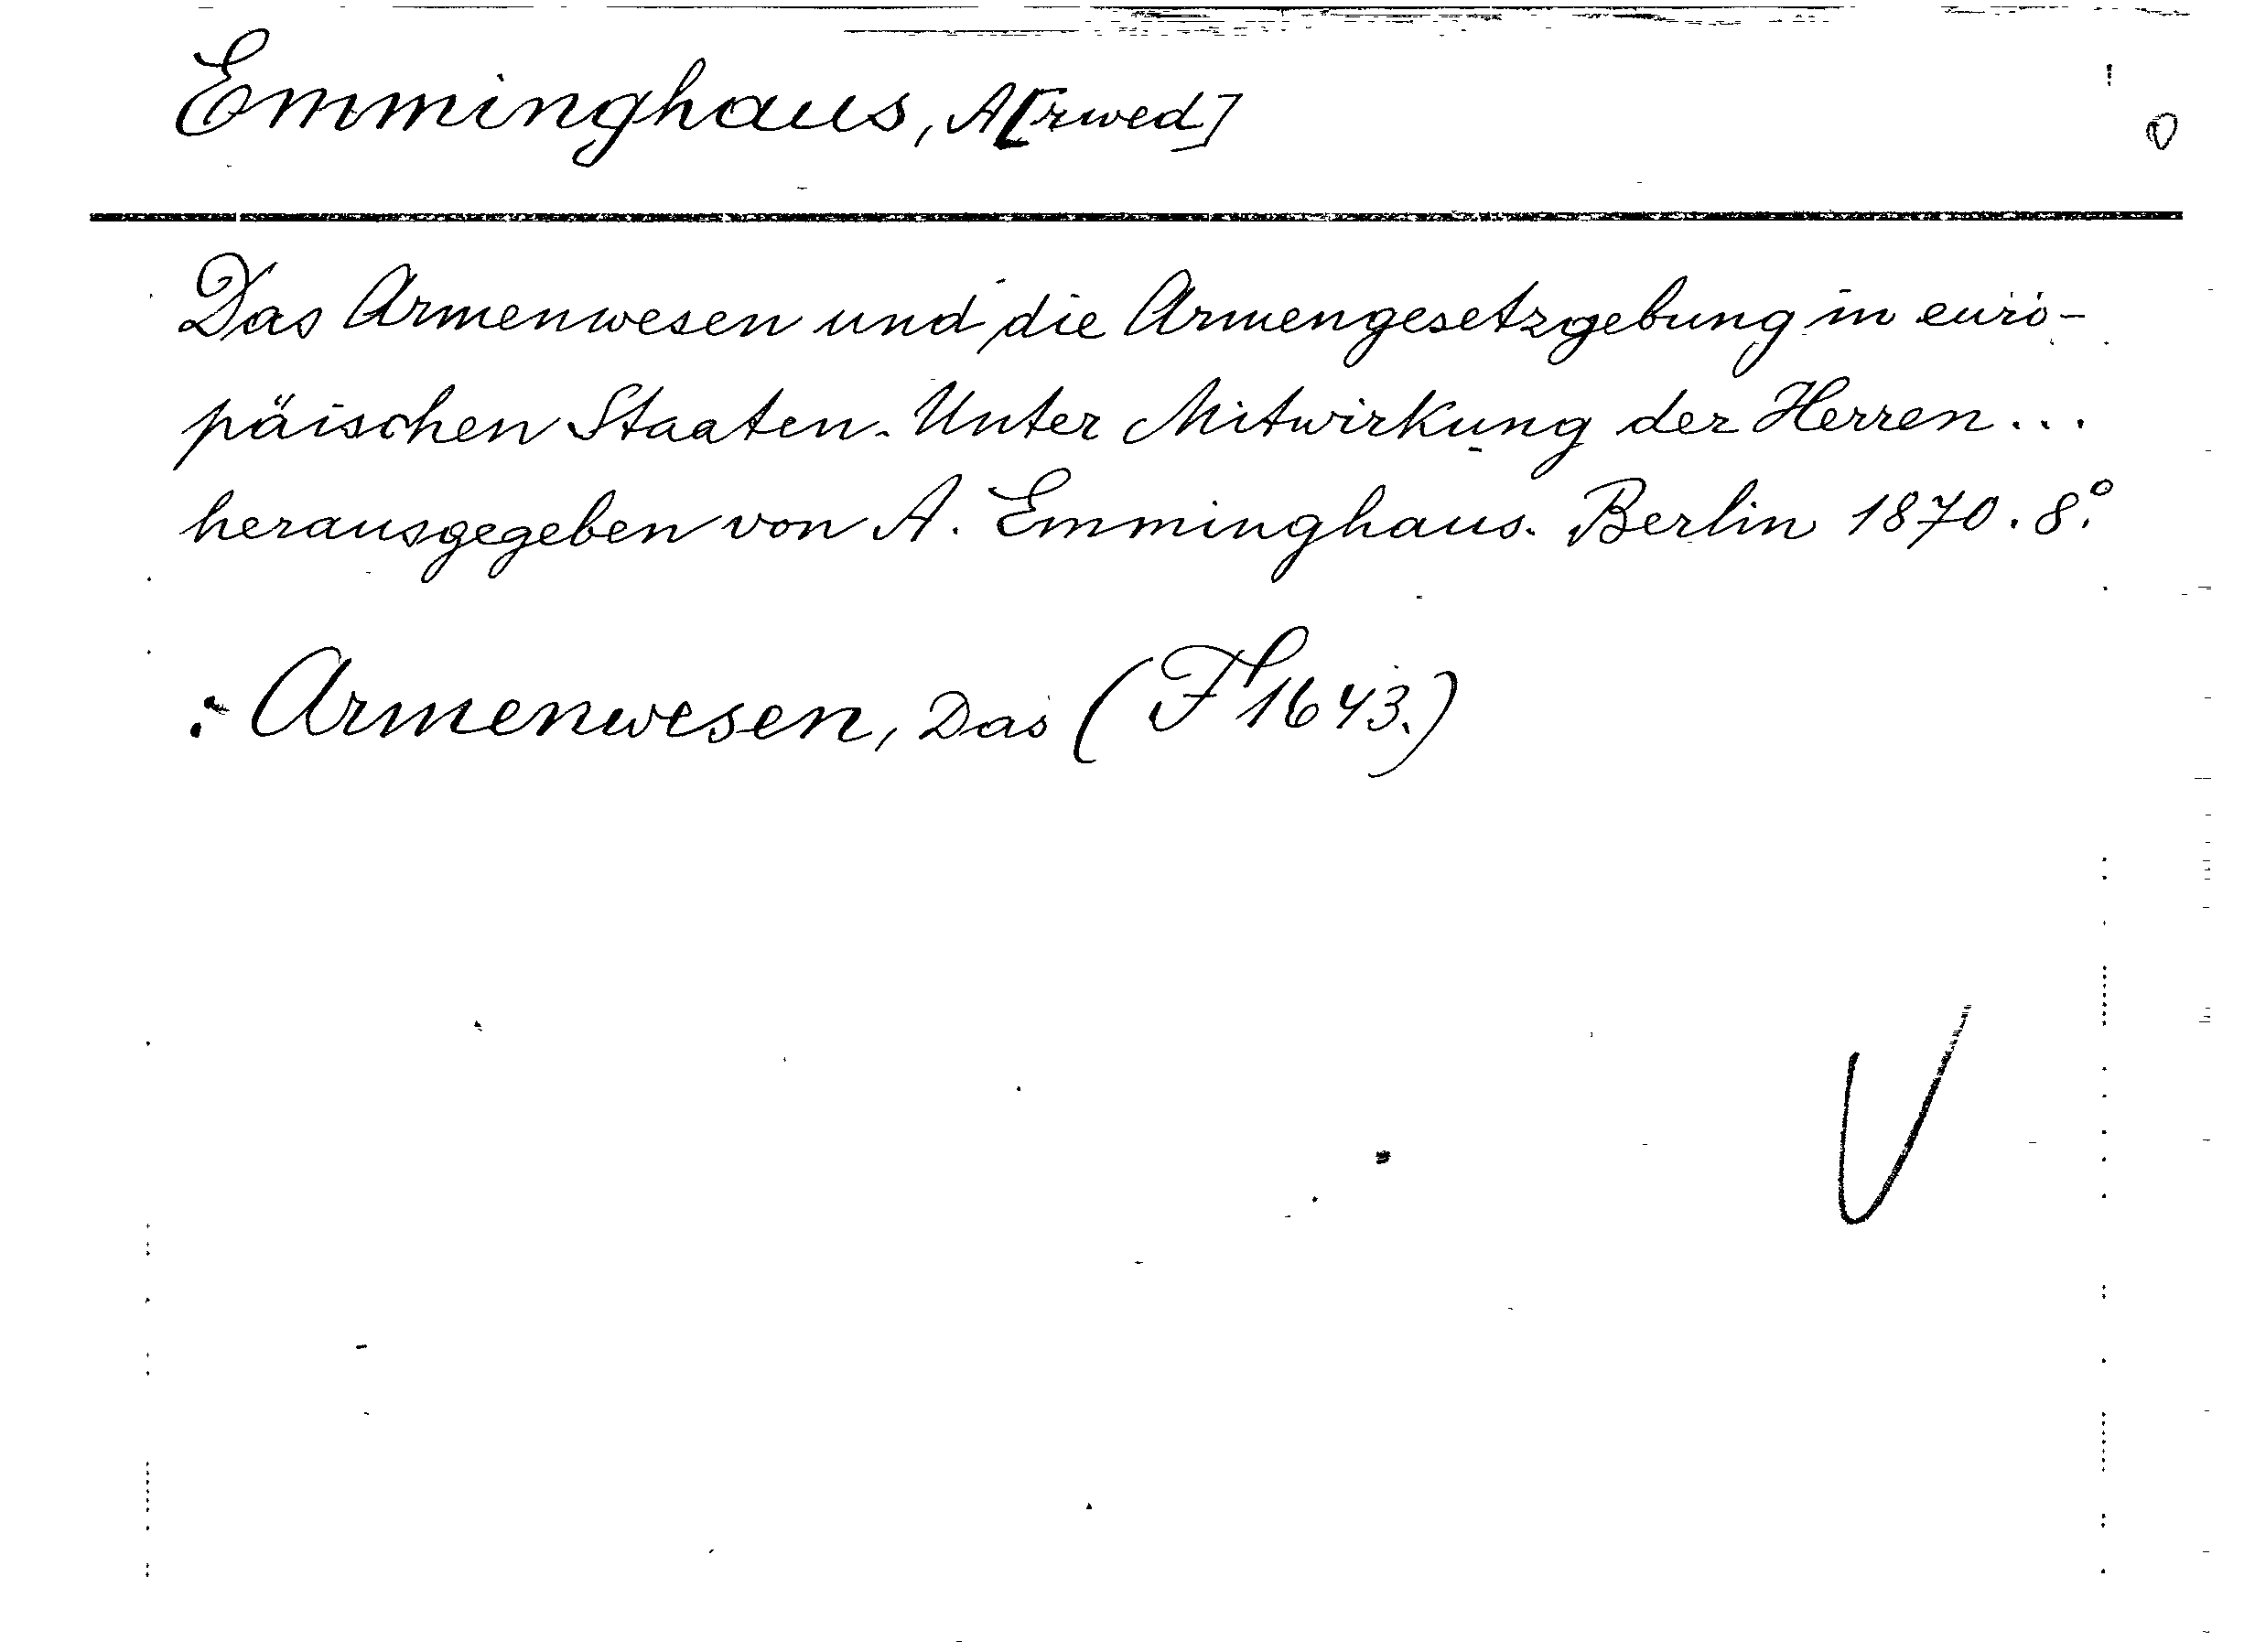 Emminghaus, A[rwed]
Das Armenwesen und die Armengesetzgebung in euro-
päischen Staaten. Unter Mitwirkung der Herren...
herausgegeben von A. Emminghaus. Berlin 1870. 8°.
: Armenwesen, Das (Fb 1643.)